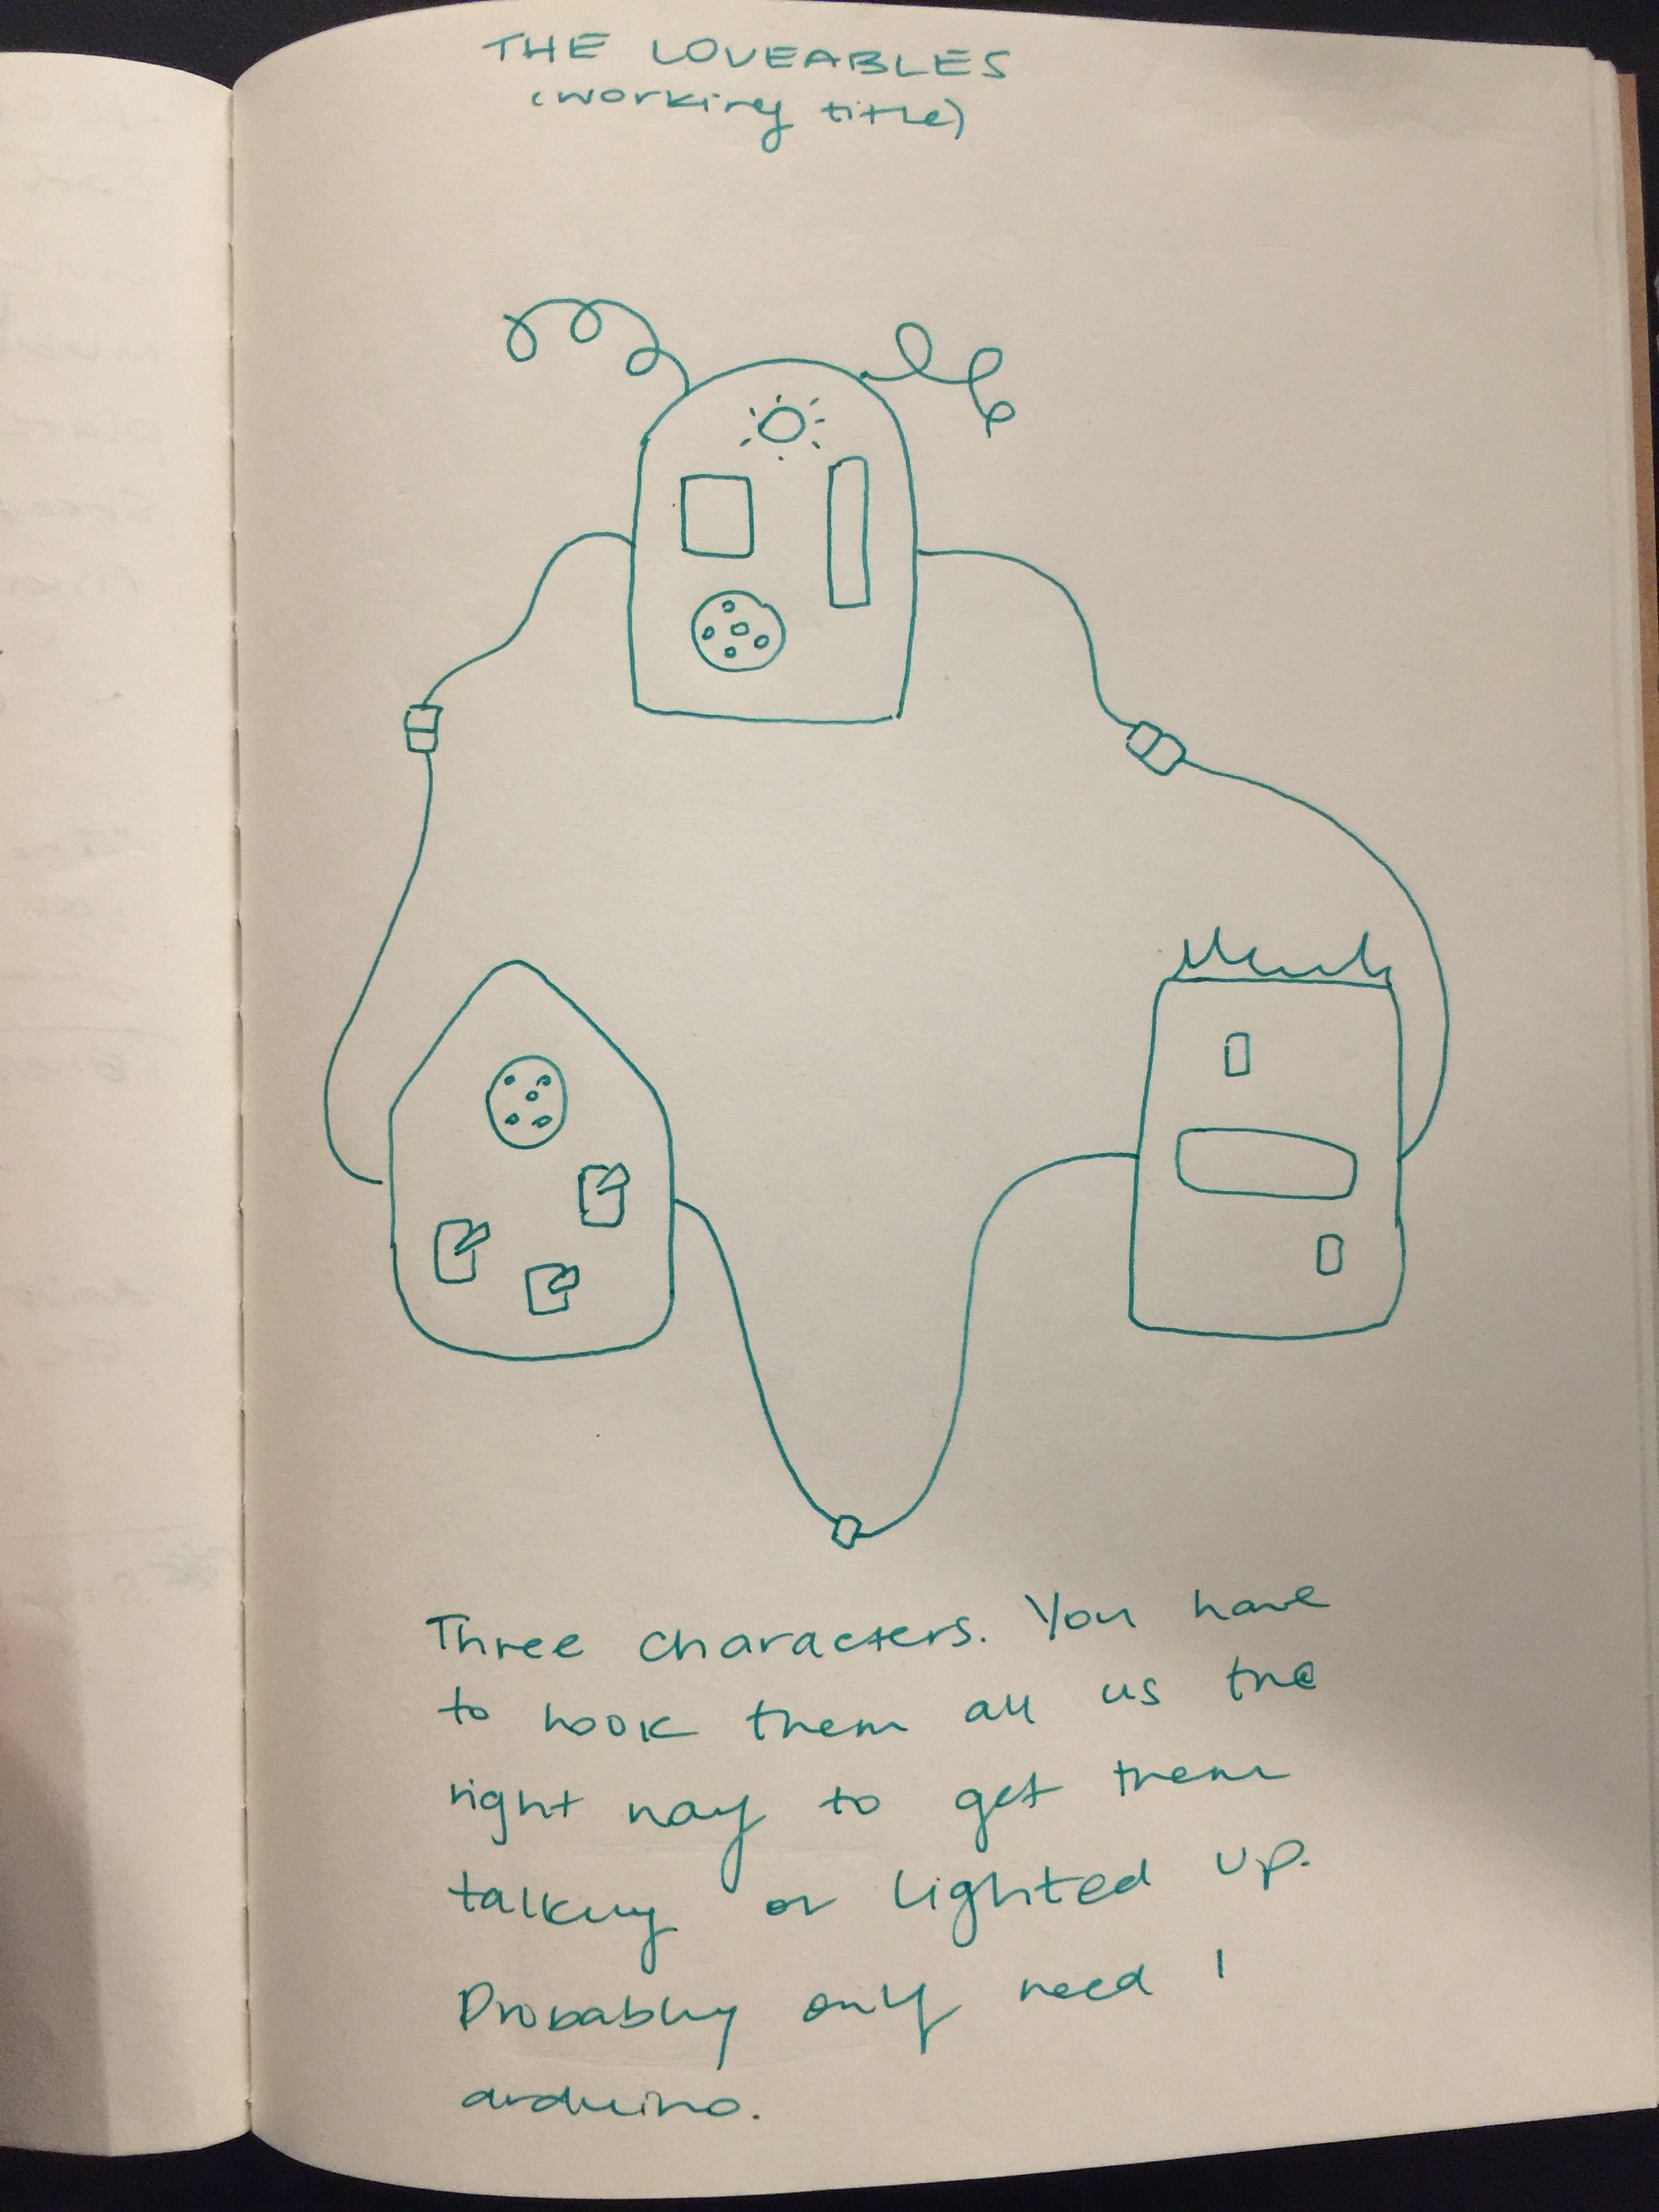 THE LOVEABLES
(working title)
Three characters. You have
to hook them all us the
right way to get them
talking or lighted up.
Probably only need 1
arduino.